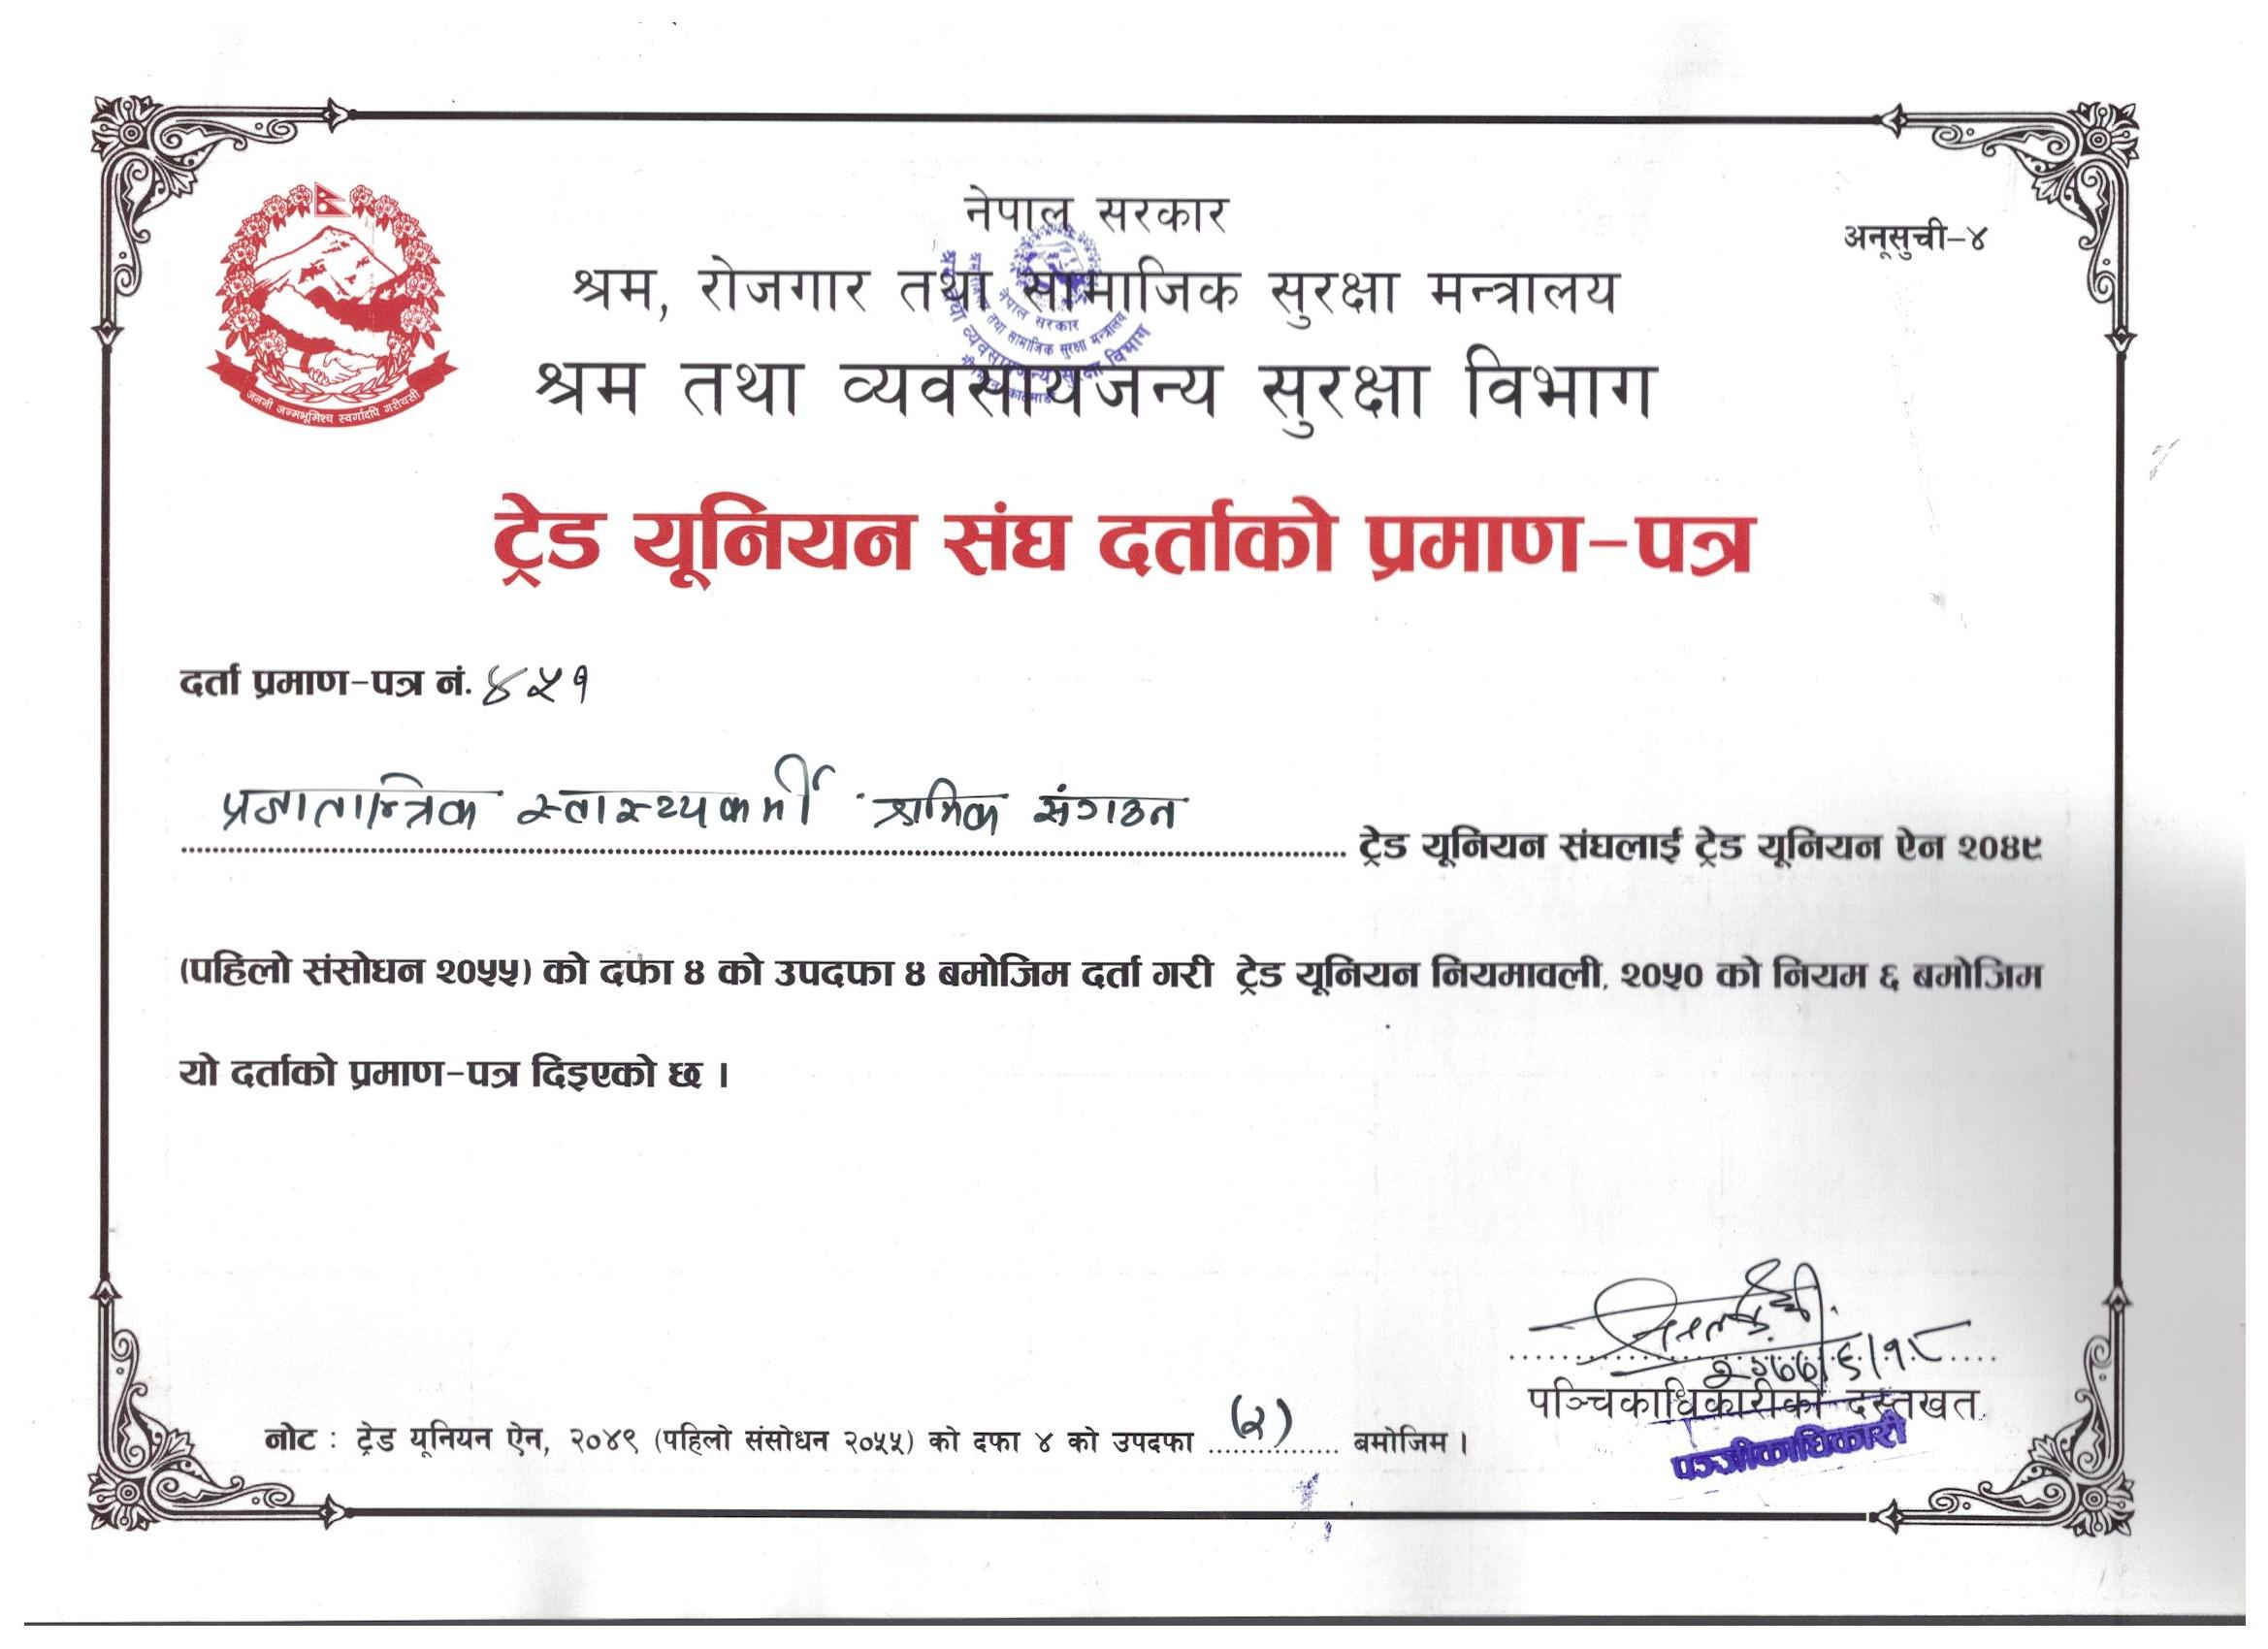 नेपाल सरकार
अनूसुची-४
श्रम, रोजगार तथा सामाजिक सुरक्षा मन्त्रालय
श्रम तथा व्यवसायजन्य सुरक्षा विभाग
जननी जन्मभूमिश्च स्वर्गादपि गरीयसी
नेपाल सरकार
तथा सामाजिक सुरक्षा मन्त्रालय
व्यवसायजन्य सुरक्षा विभाग
ट्रेड यूनियन संघ दर्ताको प्रमाण-पत्र
दर्ता प्रमाण-पत्र नं. ४५१
प्रजातान्त्रिक स्वास्थ्यकर्मी श्रमिक संगठन ट्रेड यूनियन संघलाई ट्रेड यूनियन ऐन २०४९
(पहिलो संसोधन २०५५) को दफा ४ को उपदफा ४ बमोजिम दर्ता गरी ट्रेड यूनियन नियमावली, २०५० को नियम ६ बमोजिम
यो दर्ताको प्रमाण-पत्र दिइएको छ ।
२०७७/६/१८
पञ्चिकाधिकारीको दस्तखत
नोट : ट्रेड यूनियन ऐन, २०४९ (पहिलो संसोधन २०५५) को दफा ४ को उपदफा (२) बमोजिम ।
पञ्जीकाधिकारी